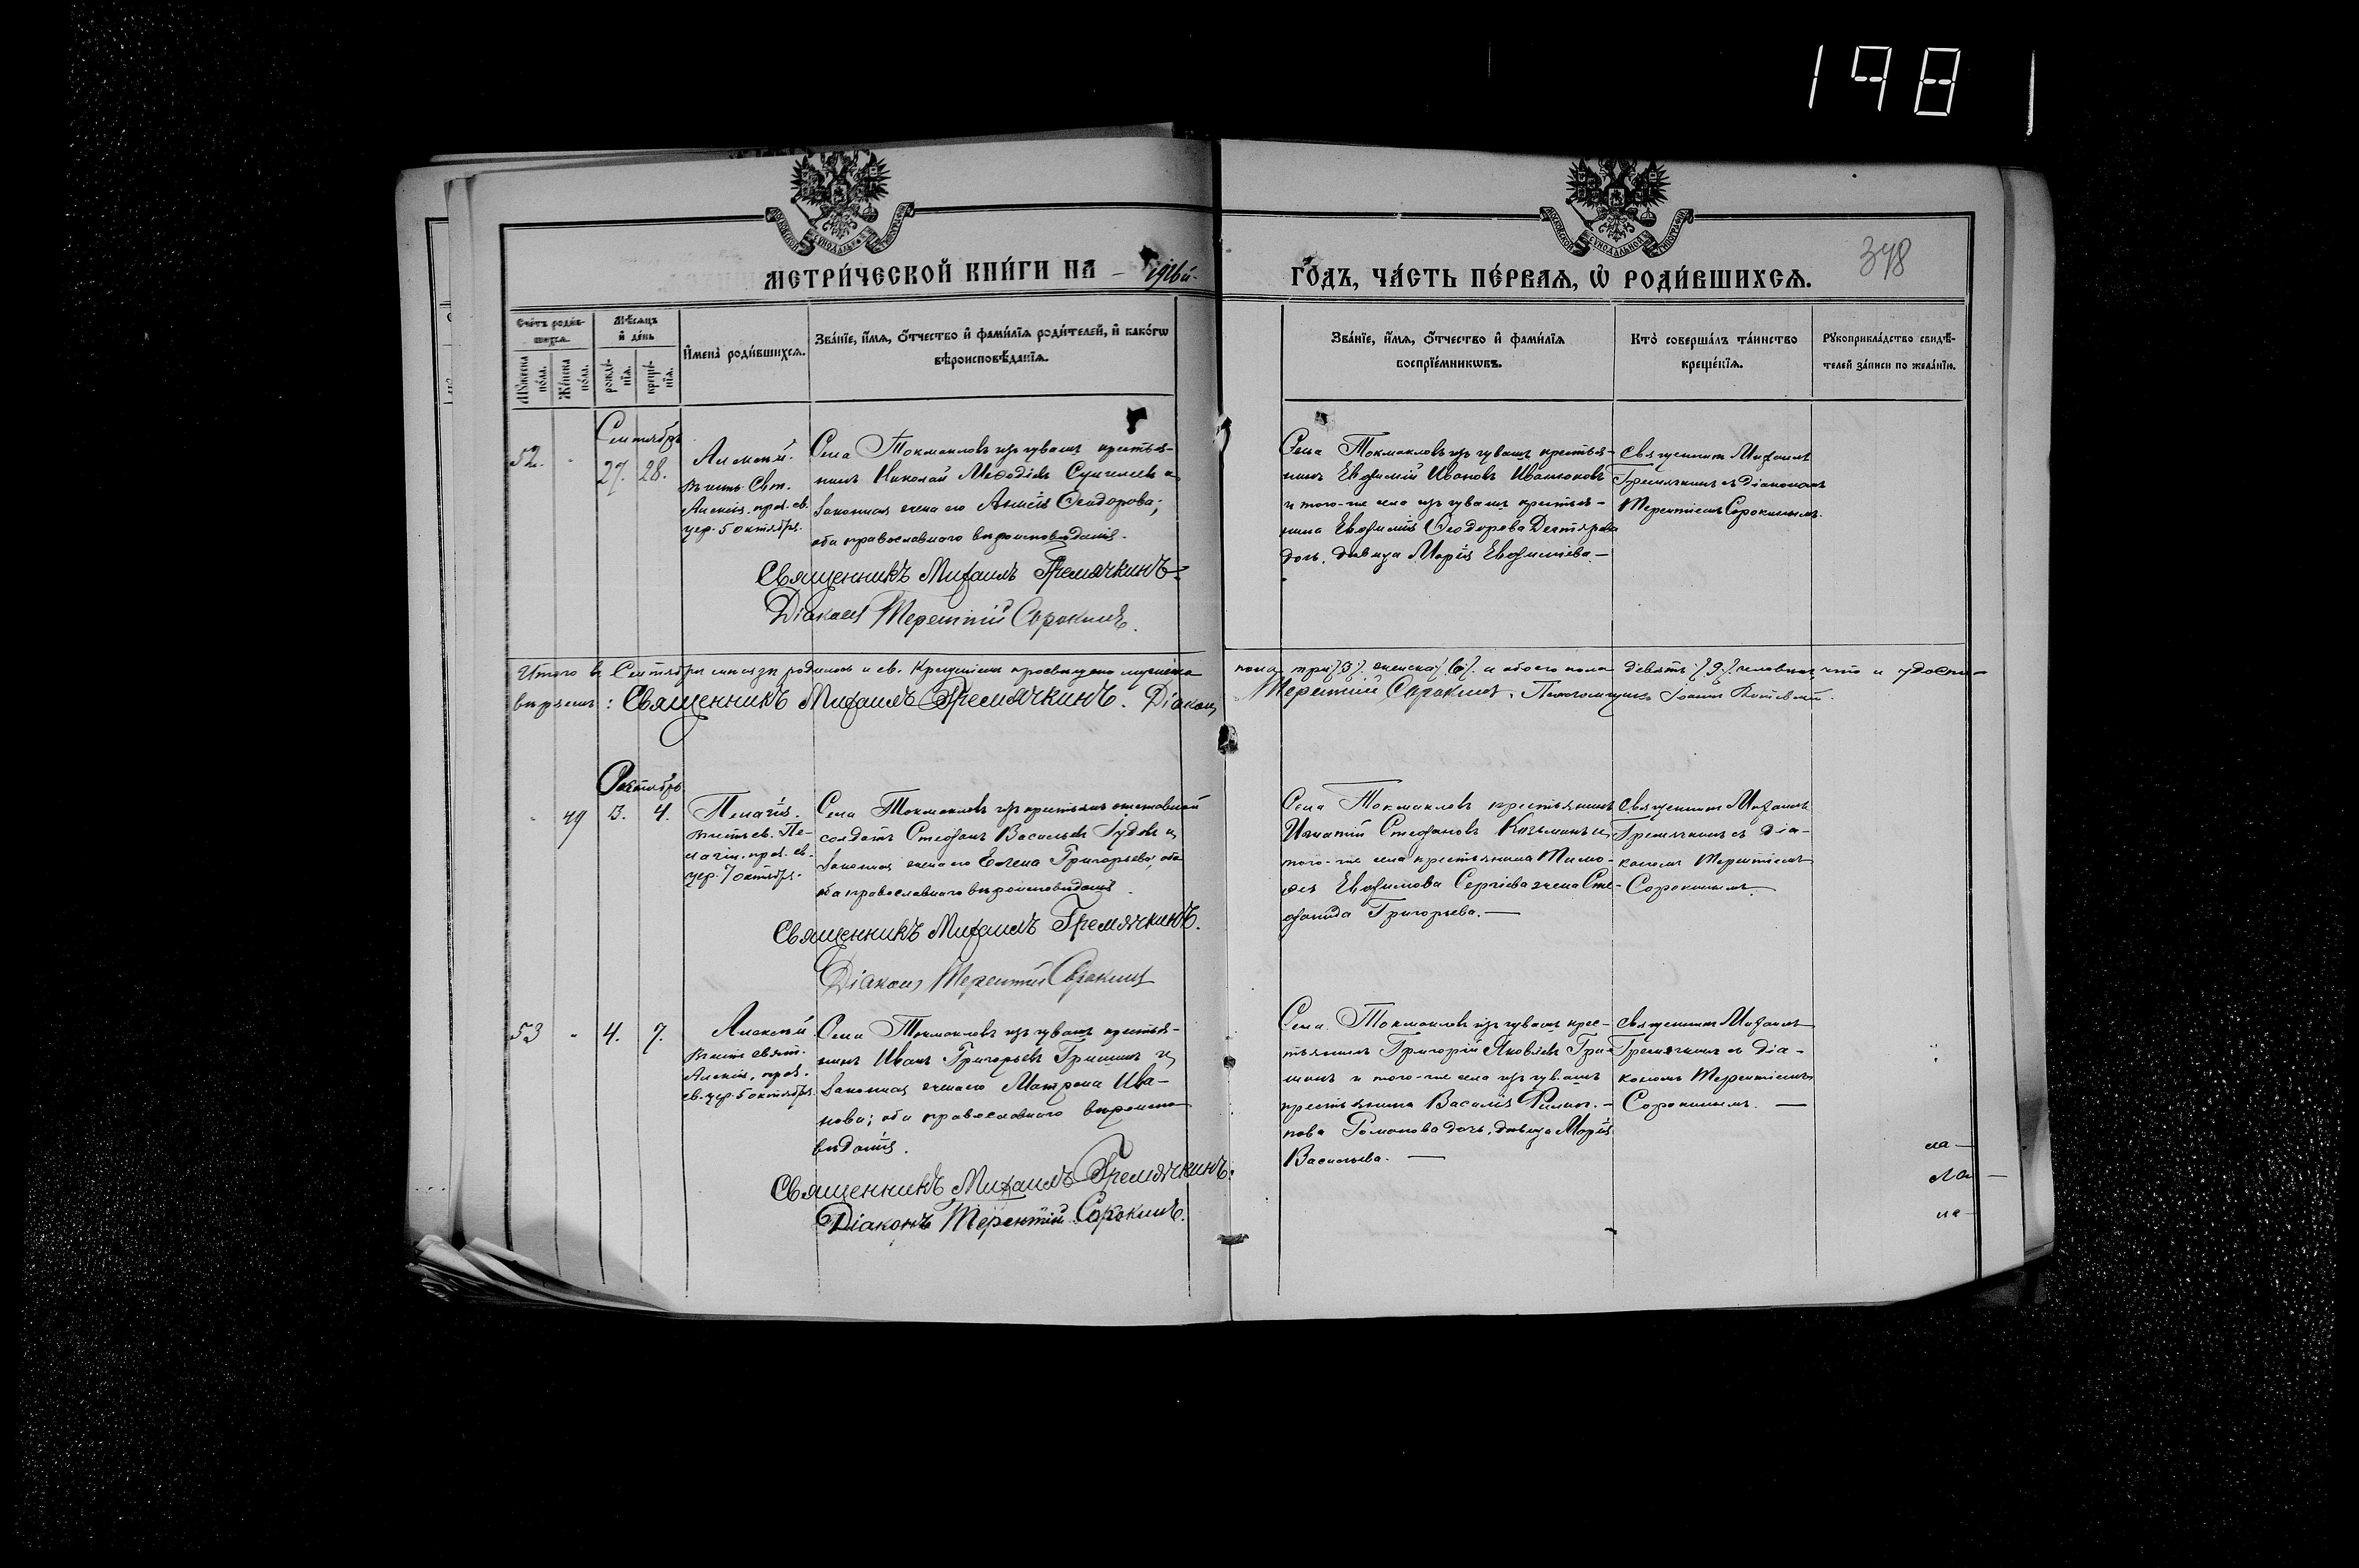 1981
МЕТРИ́ЧЕСКОЙ КНИ́ГИ НА 1916й
ГО́ДЪ, ЧА́СТЬ ПЕ́РВАЯ, Ѡ҆ РОДИ́ВШИХСЯ.
348
Сче́тъ роди́в-
шихся.
Му́жеска по́ла.
Же́нска по́ла.
Мѣ́сяцъ
и҆ де́нь
рожде́-
нїя.
креще́-
нїя.
И҆мена̀ роди́вшихся.
Зва́нїе, и҆́мя, ѻ҆́тчество и҆ фами́лїя роди́телей, и҆ како́гѡ
вѣроисповѣ́данїя.
Зва́нїе, и҆́мя, ѻ҆́тчество и҆ фами́лїя
воспрїе́мникѡвъ.
Кто̀ соверша́лъ та́инство
креще́нїя.
Рꙋкоприкла́дство свидѣ́-
телей за́писи по жела́нїю.
Сентябрь
52.
27. 28.
Алексѣй.
въ честь Свт.
Алексія, праз. св.
цер. 5 октября.
Села Токмаклов изъ чувашъ крестья-
нинъ Николай Меѳодіев и
законная жена его Ѳеодорова;
оба православнаго вѣроисповѣданія.
Священникъ Михаилъ Гремячкинъ.
Діаконъ Терентій Сорокинъ.
Села Токмаклов изъ чувашъ крестья-
нинъ Евфимій Ивановъ
и того-же села изъ чувашъ крестья-
нина Евфимія Ѳеодорова Дегтярева
дочь, дѣвица Марія Евфиміева.—
Священникъ Михаилъ
Гремячкинъ съ діакономъ
Терентіемъ Сорокинымъ.
Итого въ Сентябрѣ мѣсяцѣ родилось и св. Крещеніемъ просвѣщено мужеска
пола три /3/, женска /6/, и обоего пола девять /9/ человѣкъ, что и удосто-
вѣряемъ: Священникъ Михаилъ Гремячкинъ. Діаконъ
Терентій Сорокинъ. Псаломщикъ Іоаннъ
Октябрь.
49
3. 4.
Пелагія.
въ честь св. Пе-
лагіи, праз. св.
цер. 7 октября.
Села Токмаклов изъ крестьянъ отставной
солдатъ Стефанъ Васильев Гудов и
законная жена его Елена Григорьева, оба
оба православнаго вѣроисповѣданія.
Священникъ Михаилъ Гремячкинъ.
Діаконъ Терентій Сорокинъ
Села Токмаклов крестьянинъ
Игнатій Стефановъ Козьминъ и
того-же села крестьянина Тимо-
фея Евфимова Сергіева жена Сте-
фанида Григорьева.—
Священникъ Михаилъ
Гремячкинъ съ діа-
кономъ Терентіемъ
Сорокинымъ.
53
4. 7.
Алексѣй
въ честь Свят.
Алексія, праз.
св. цер. 5 октября.
Села Токмаклов изъ чувашъ крестья-
нинъ Иванъ Григорьев Гришинъ и
законная жена его Матрона Ива-
нова; оба православнаго вѣроиспо-
вѣданія.
Священникъ Михаилъ Гремячкинъ.
Діаконъ Терентій Сорокинъ.
Села Токмаклов изъ чувашъ крес-
тьянинъ Григорій Яковлев Гри-
шинъ и того-же села изъ чувашъ
крестьянина Василія Филип-
пова Романова дочь, дѣвица Марія
Васильева. —
Священникъ Михаилъ
Гремячкинъ съ діа-
кономъ Терентіемъ
Сорокинымъ. —
ла—
ла—
ла